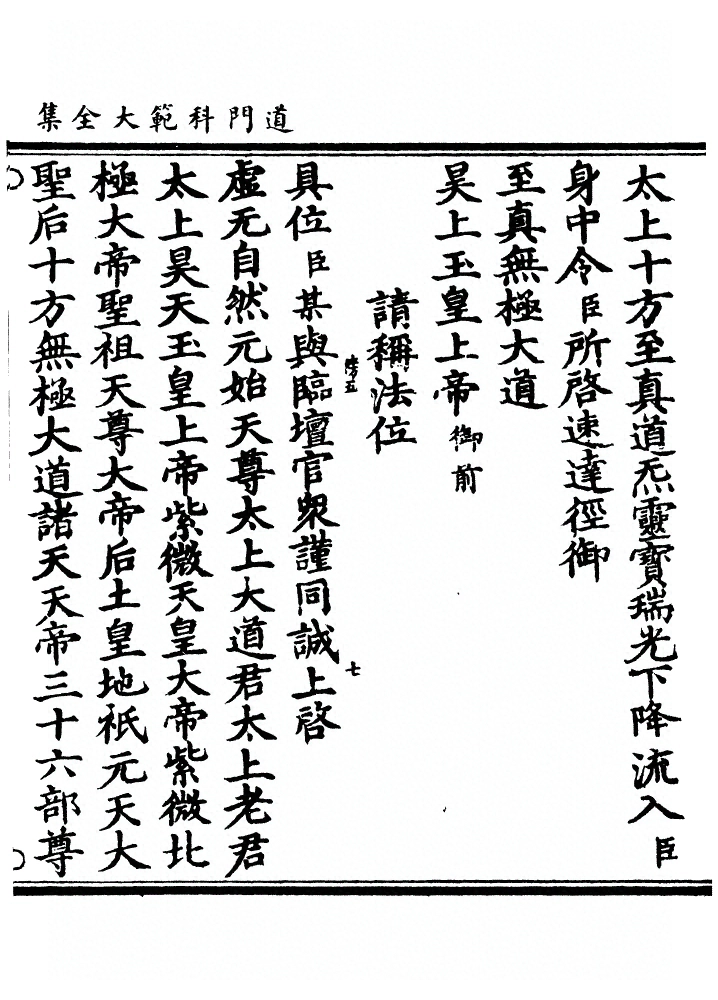 道門科範大全集
太上十方至真道炁靈寶瑞光下降流入臣
身中令臣所啓速達徑御
至真無極大道
昊上玉皇上帝御前
請稱法位
具位臣某與臨壇官衆謹同誠上啓
虛无自然元始天尊太上大道君太上老君
太上昊天玉皇上帝紫微天皇大帝紫微北
極大帝聖祖天尊大帝后土皇地祇元天大
聖后十方無極大道諸天天帝三十六部尊
七